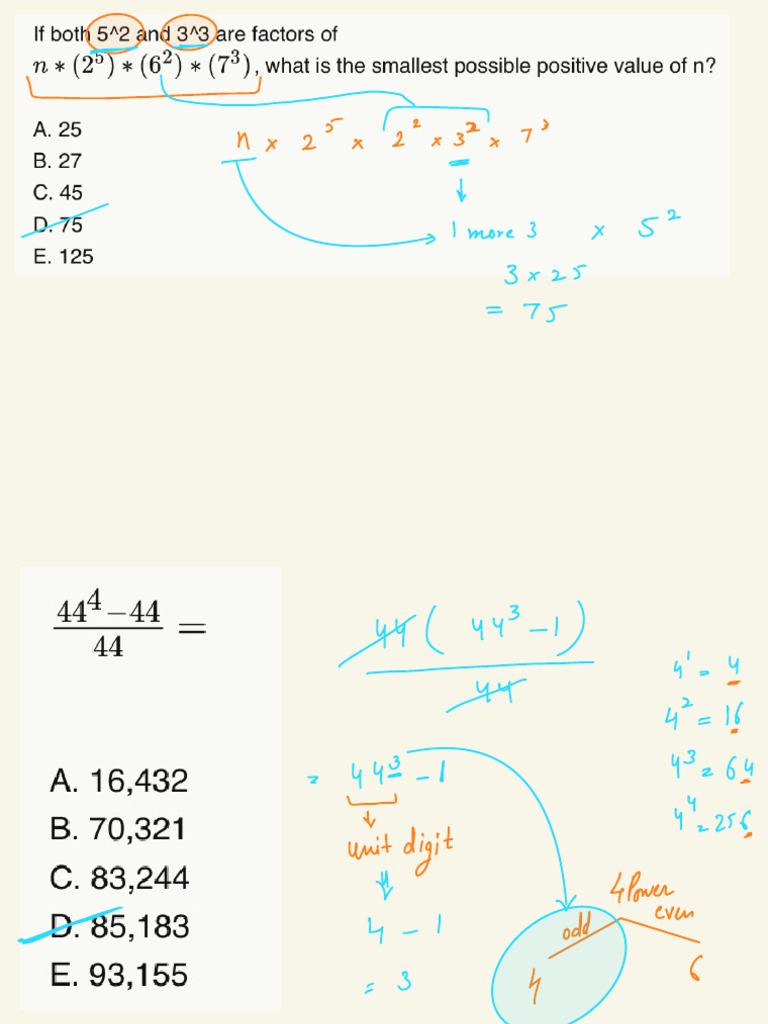 If both 5^2 and 3^3 are factors of
n ∗ (2⁵) ∗ (6²) ∗ (7³), what is the smallest possible positive value of n?
A. 25
B. 27
C. 45
D. 75
E. 125
n × 2⁵ × 2² × 3² × 7³
1 more 3 × 5²
3 × 25
= 75
44⁴ − 44
44
=
A. 16,432
B. 70,321
C. 83,244
D. 85,183
E. 93,155
44 ( 44³ − 1 )
44
= 44³ − 1
unit digit
4 − 1
= 3
4¹ = 4
4² = 16
4³ = 64
4⁴ = 256
4 Power
odd even
4 6